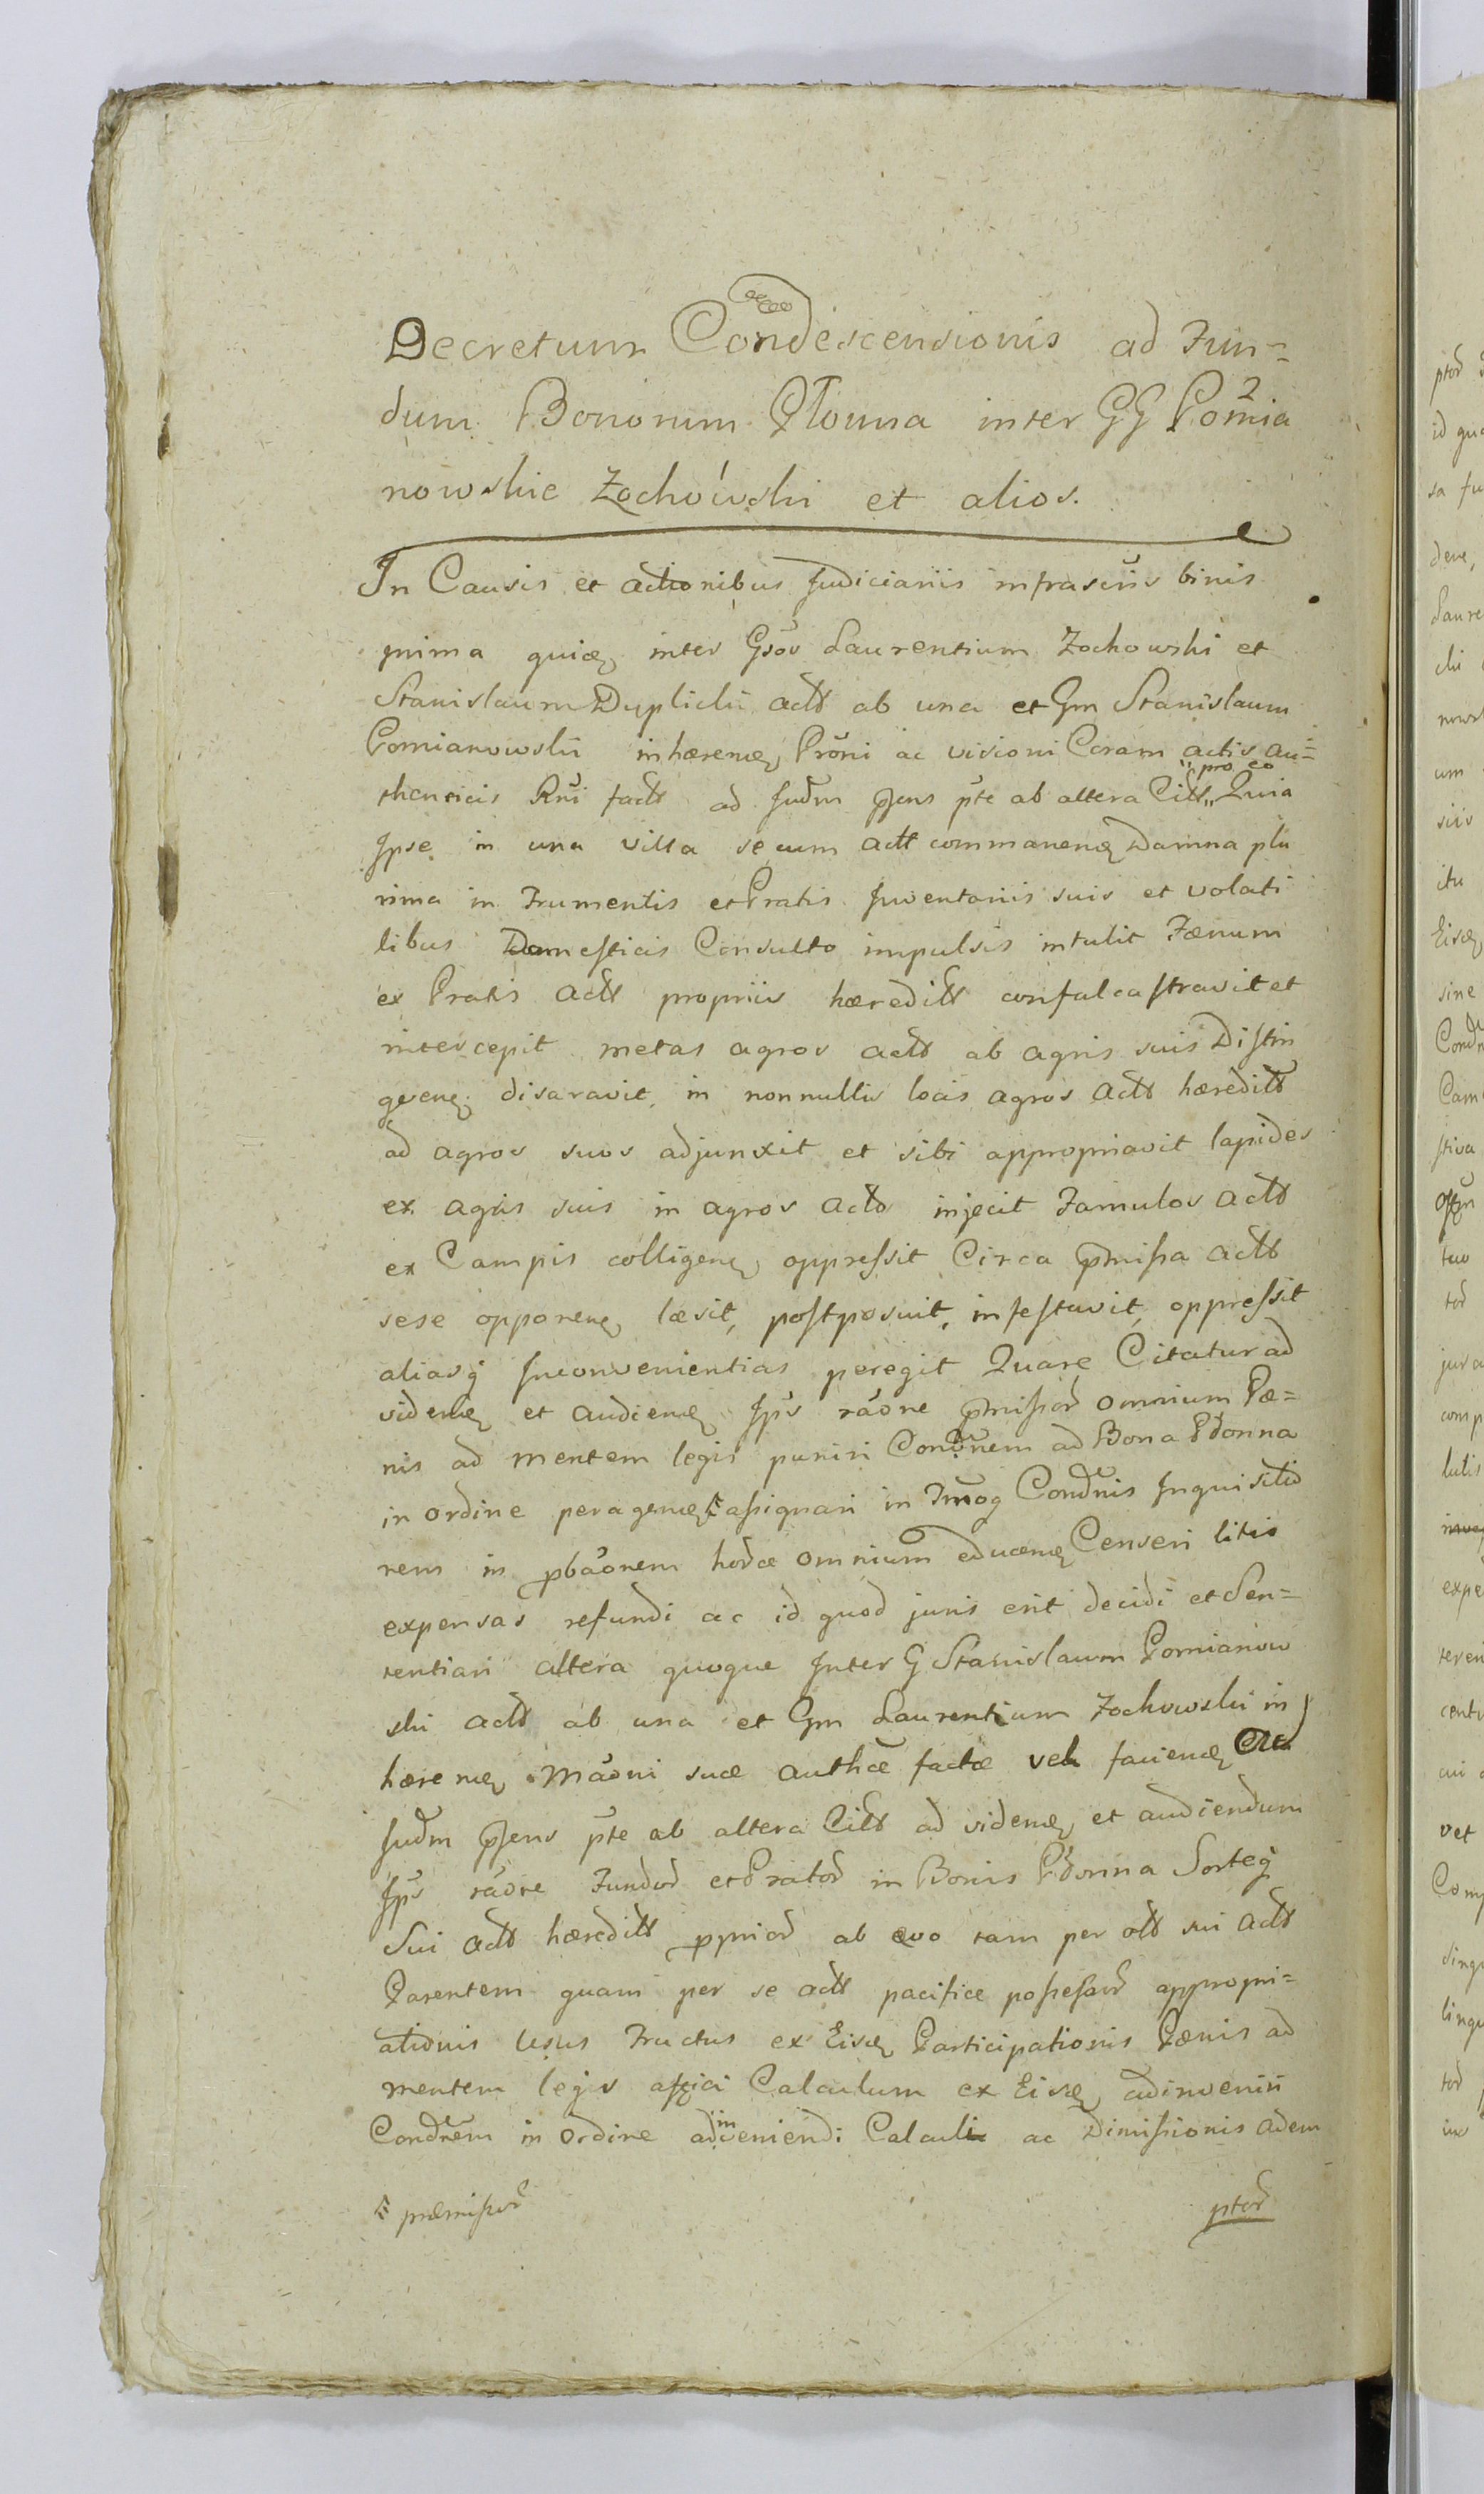 Decretum Condescensionis ad Fun=
dum Bonorum Płonna inter GG Pomia
nowskie Zochowski et alios.
In Causis et actionibus Judiciariis infrascris binis
prima quidẽ inter Gsos Laurentium Zochowski et
Stanislaum Duplicki act ab una et Gm Stanislaum
Pomianowski inhærendẽ Proni ac visioni Coram actis au=
thenticis Rni fact ad Judm pñsens pte ab altera Citt „pro eo„ Quia
Ipse in una villa secum act commanendẽ Damna plu
rima in Frumentis et Pratis Inventariis suis et volati
libus Domesticis Consulto impulsis intulit Fænum
ex Pratis act propriis hæreditt confalcastravit et
intercepit metas agros act ab agris suis Distin
gvendẽ disaravit, in nonnullis locis agros act hæreditt
ad agros suos adjunxit et sibi appropriavit lapides
ex agris suis in agros act injecit Famulos act
ex Campis colligendẽ oppressit Circa pmissa act
sese opponendẽ læsit, postposuit, infestavit, oppressit
aliasq Inconvenientias peregit Quare Citatur ad
videndẽ et audiendẽ Ips raõne pmissor omnium Pæ=
nis ad mentem legis puniri Condnem ad Bona Płonna
in ordine peragendẽ assignari in Condnis Inquisitio
nem in pbaõnem hor omnium educendẽ Censeri litis
expensas refundi ac id quod juris erit decidi et Sen=
tentiari altera quoque Inter G Stanislaum Pomianow
ski act ab una et Gm Laurentium Zochowski in
hærendẽ Maõni suæ authæ factæ vel faciendẽ
Judm pñsens pte ab altera Citt ad videndẽ et audiendum
Ips raõne Fundor et Prator in Bonis Płonna Sorteq
Sui act hæreditt pprior ab ævo tam per olt sui act
Parentem quam per se act pacifice possessor appropri=
ationis Usus Fructus ex Eisdẽ Participationis Pænis ad
mentem legis affici Calculum ex Eisdẽ adinveniri
Condnem in ordine adinveniendi Calculi ac Dimissionis adem
præmissor
ptor